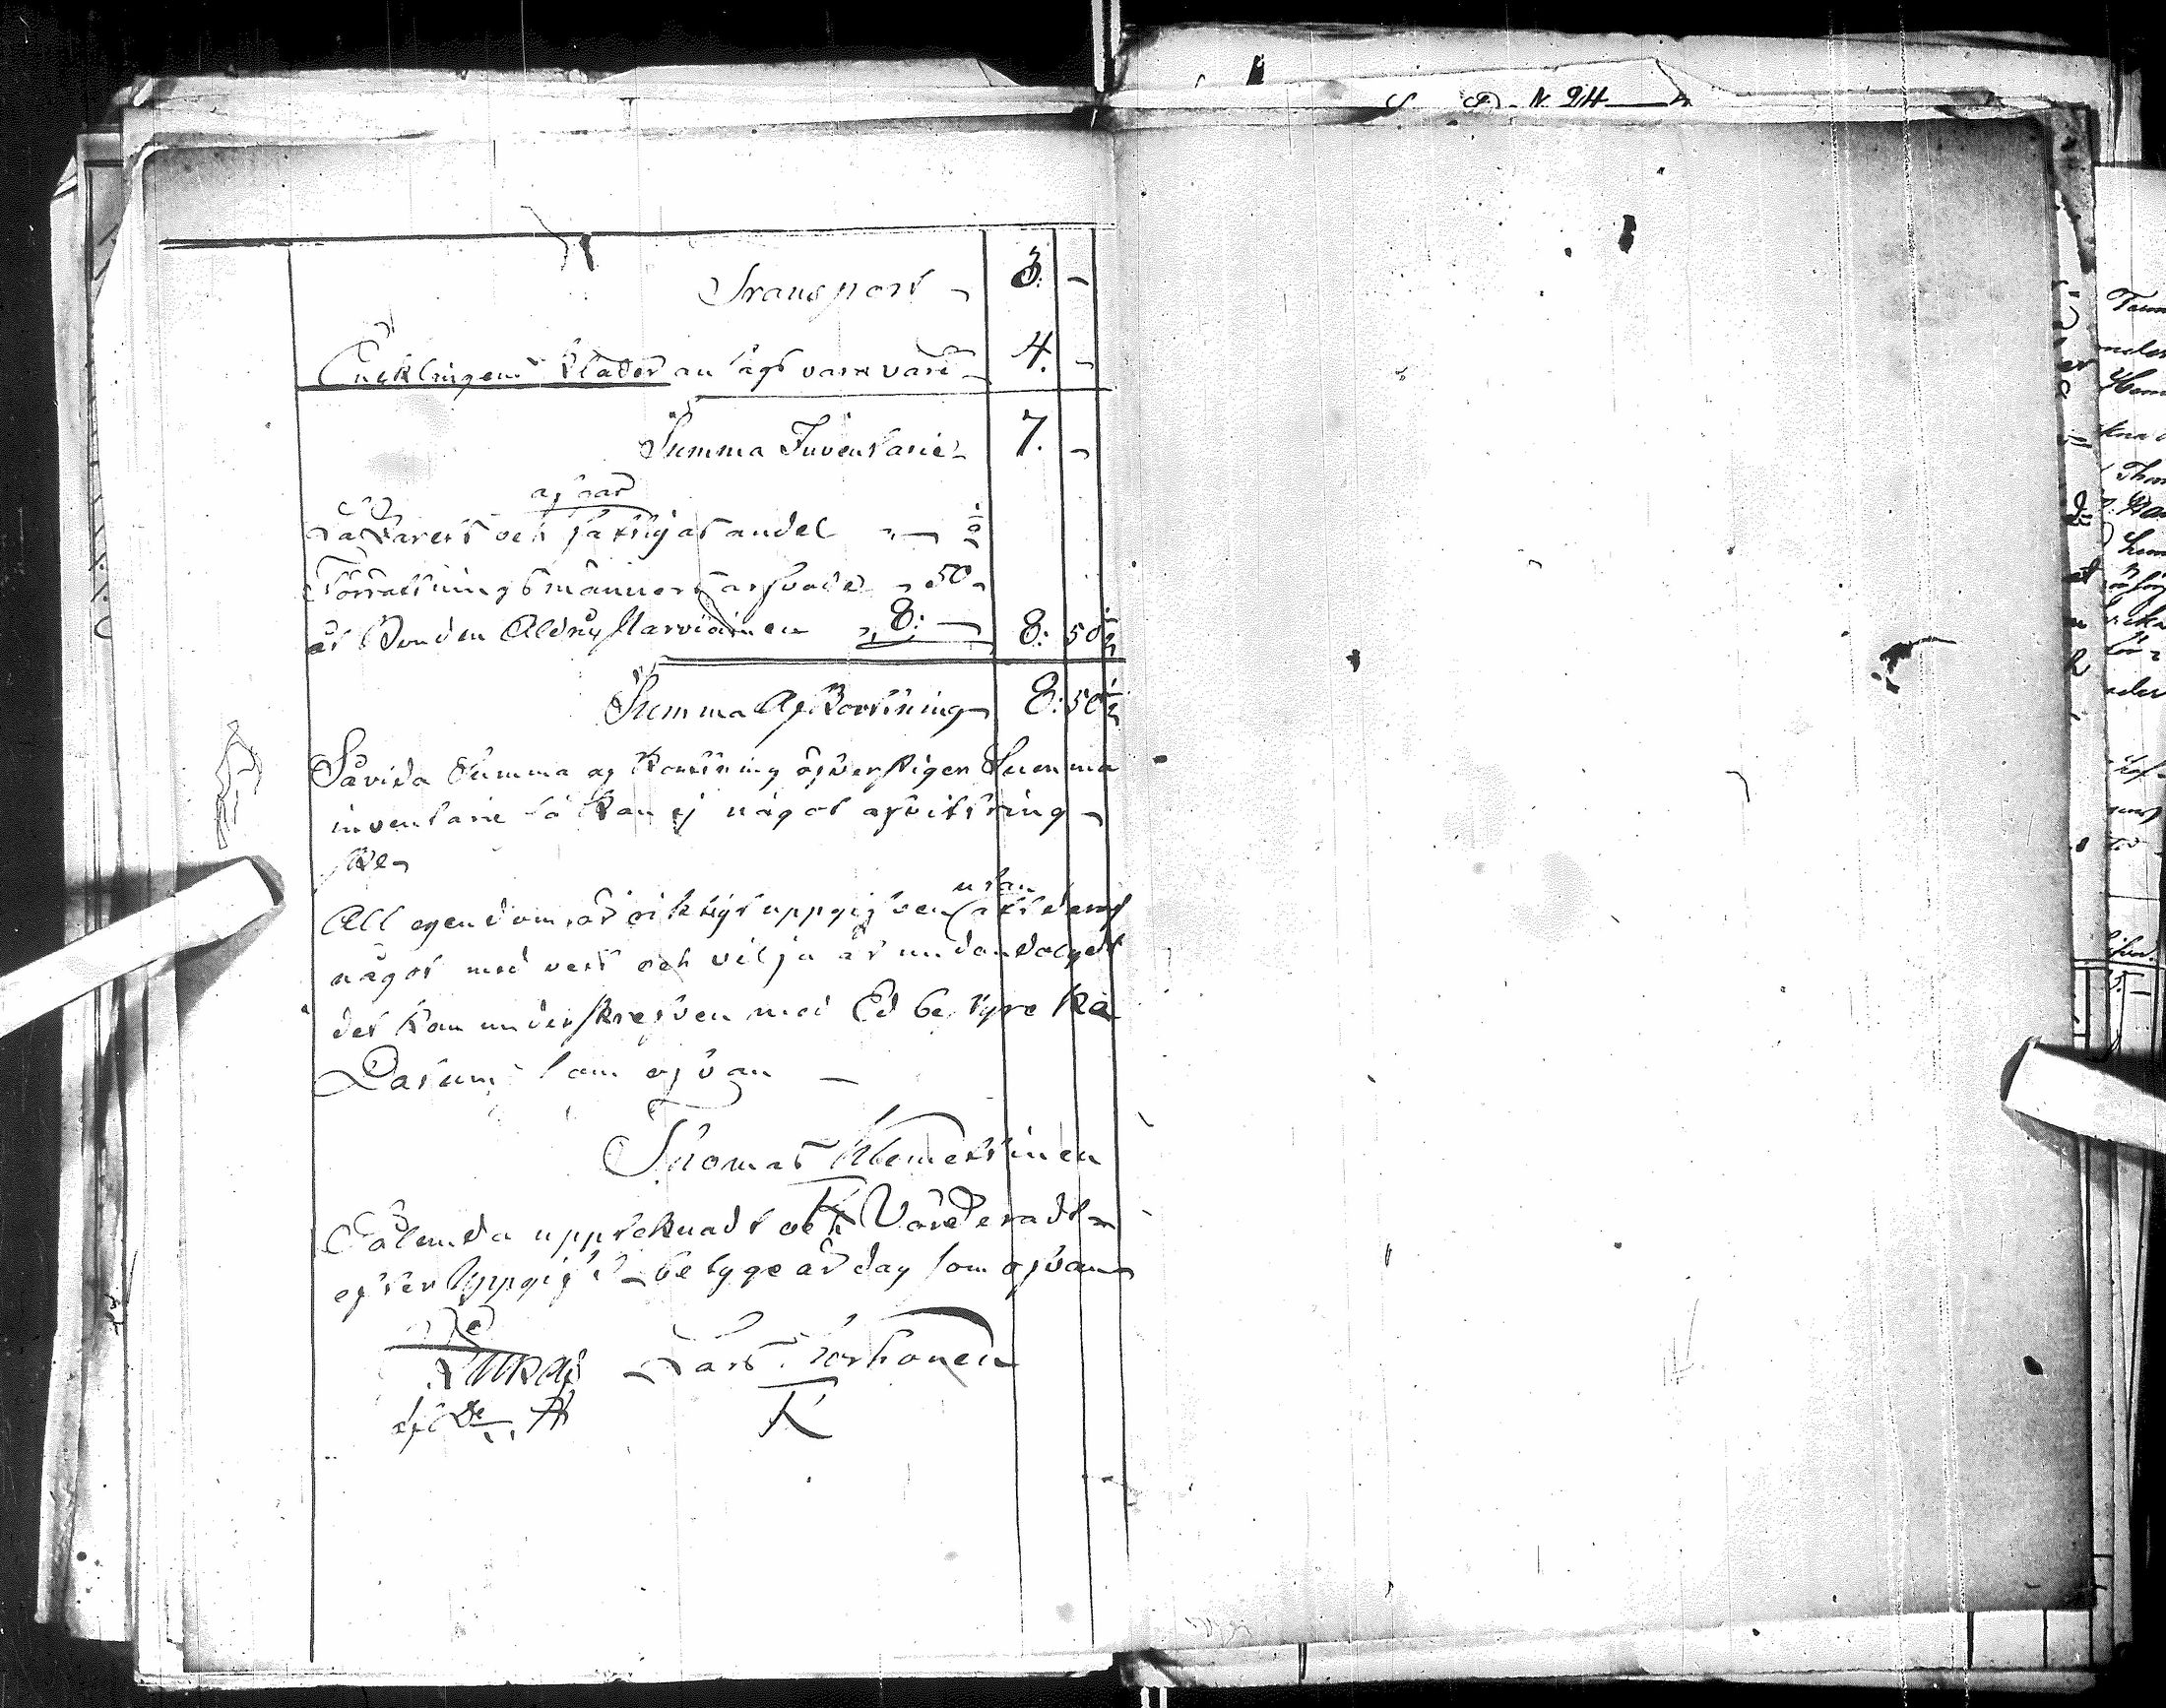 N. 24
Transport 3. -
Encklingens kläder an sågs vara värd 4. -
Summa Inventarie 7. -
afgår
Lasarets och fattigas andel
Förrättningsmänners arfvode 50
åt Bonden Aldrig Harviainen 8: - 8: 50 1/2
Summa Afkortning 8: 50 1/2
Såvida Summa af kortning öfverstiger Summa
inventarie så kan ej något arfvits ring
ske
utan
All egendom är riktigt uppgifven at deraf
något med vett och vilja är undandolgdt
det kan underskrefven med Ed bestyrcka
Datum som ofvan
Thomas Klemettinen
Sålunda upptecknadt och Värderadt
efter Uppgift betygear dag som ofvan
Lars Korhonen
K